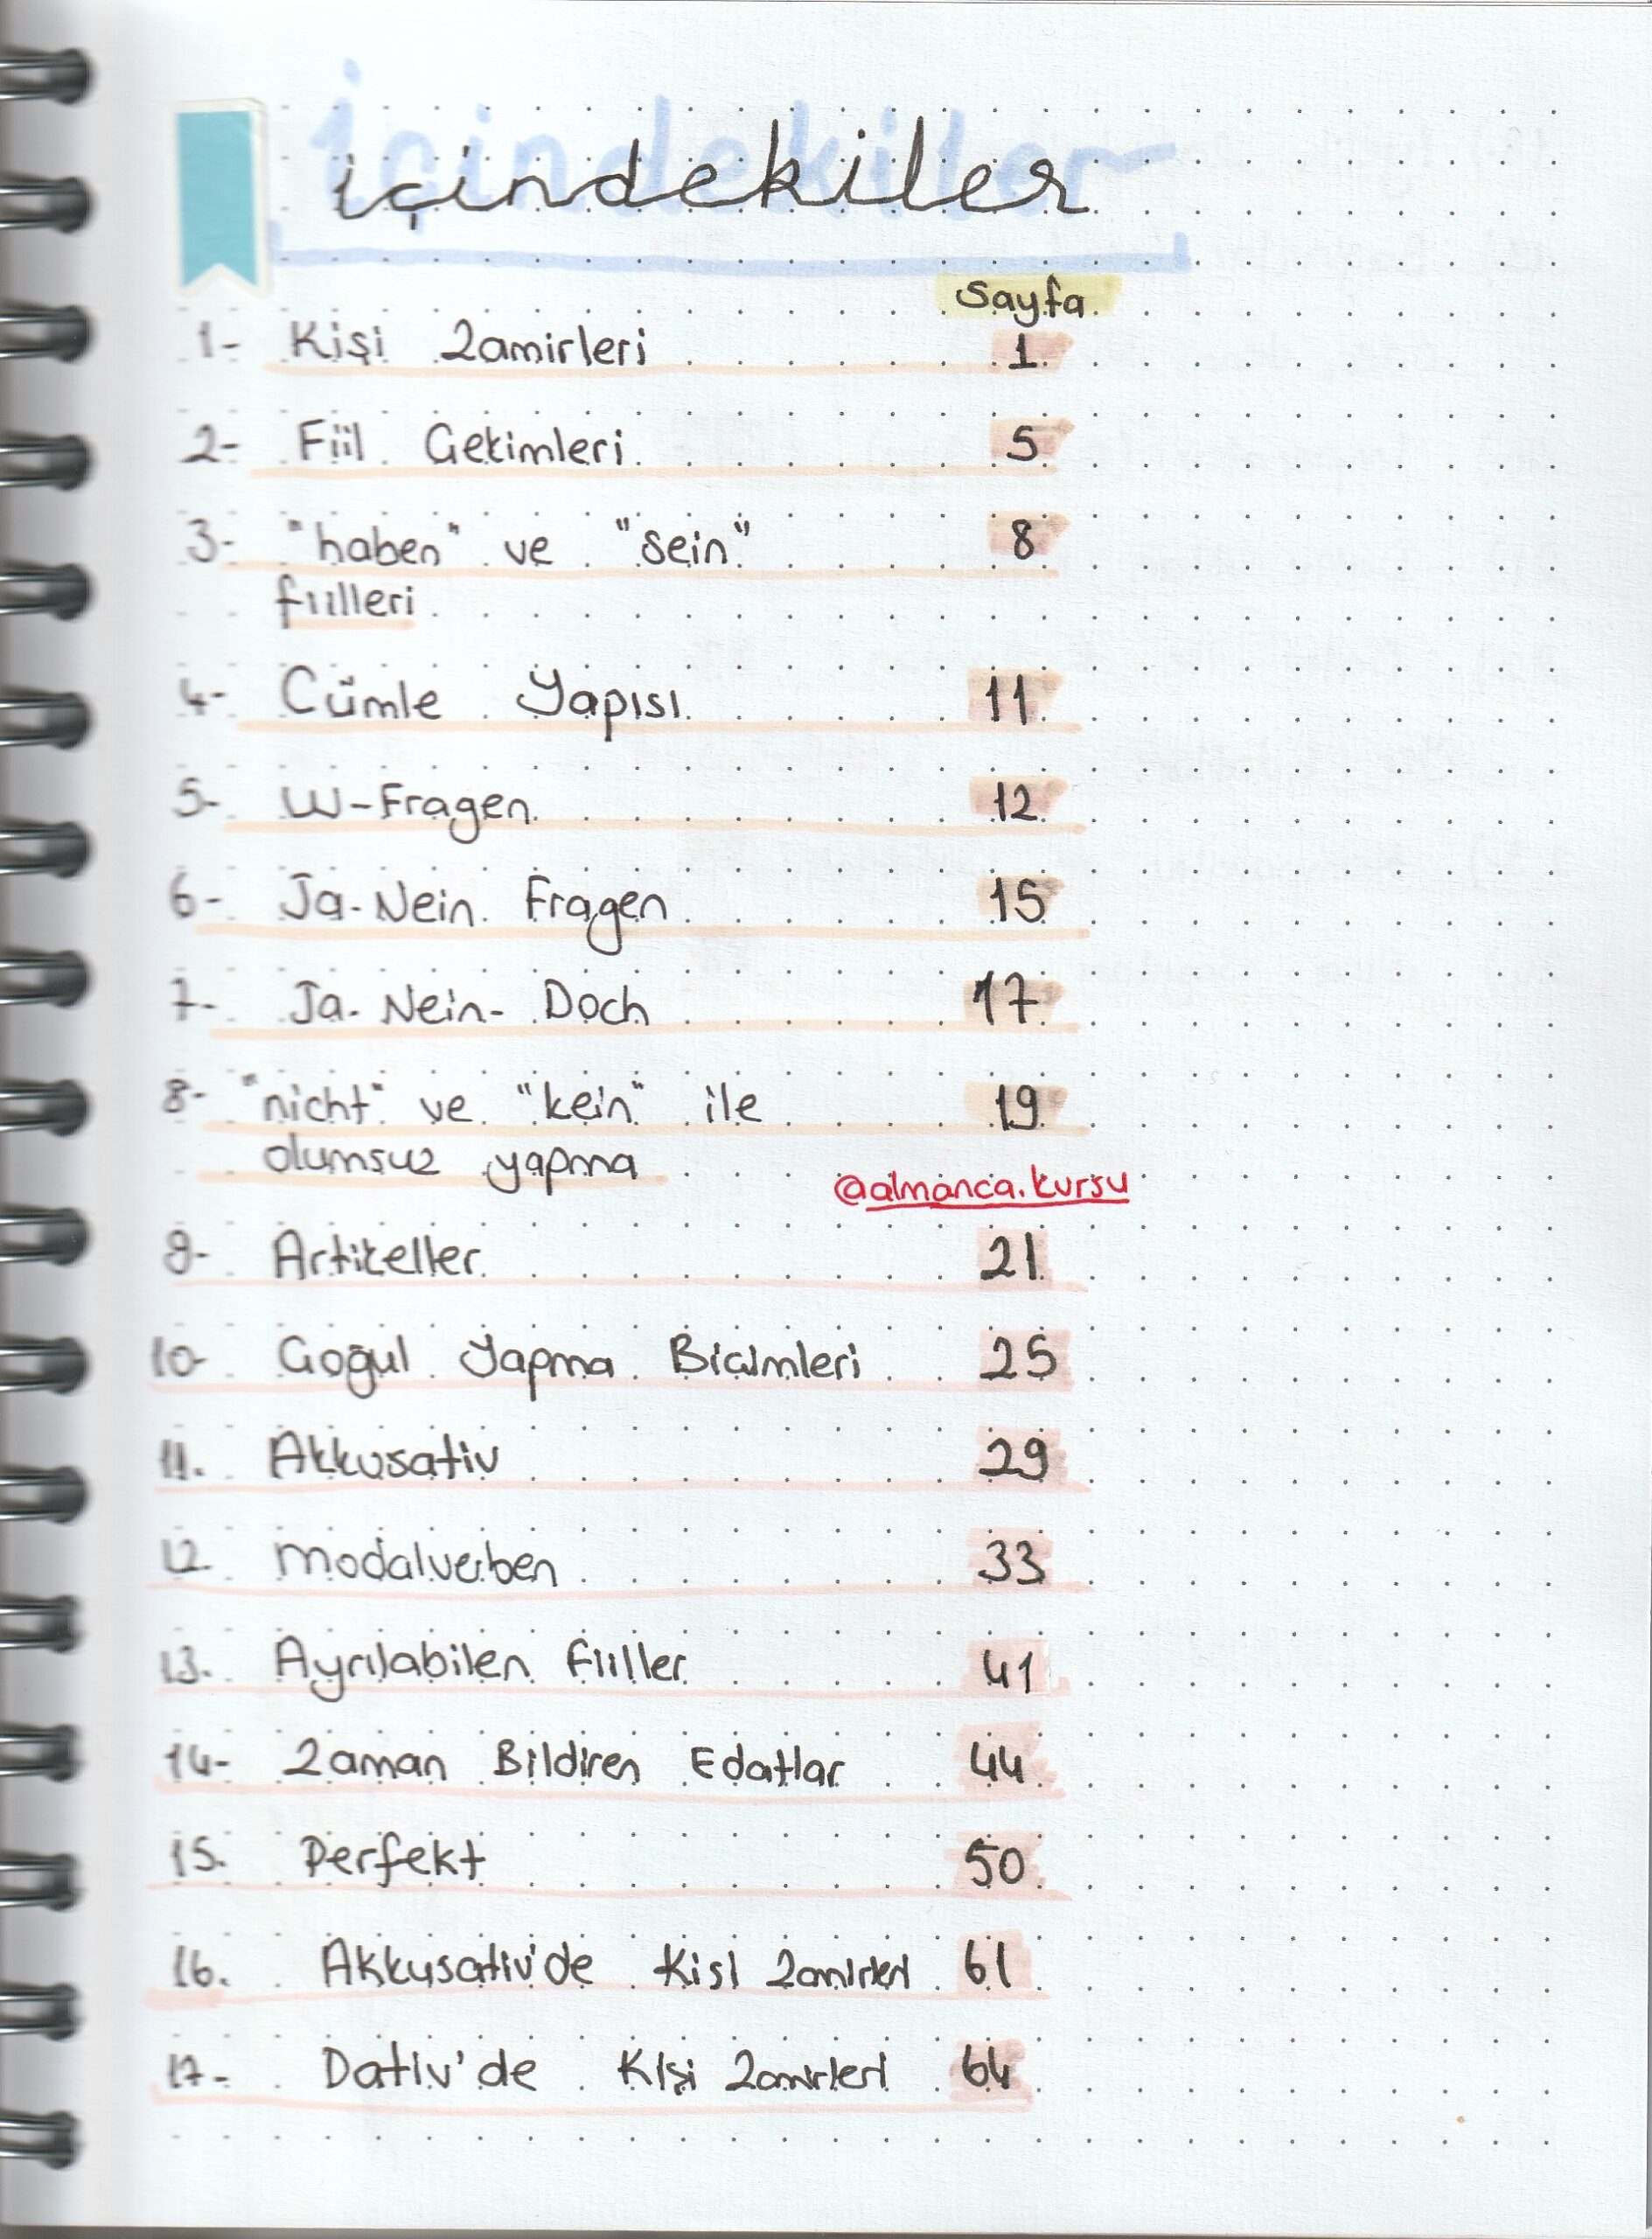 içindekiler
içindekiler
Sayfa
1- Kişi Zamirleri 1
2- Fiil Çekimleri 5
3- "haben" ve "sein" 8
fiilleri
4- Cümle Yapısı 11
5- W-Fragen 12
6- Ja-Nein Fragen 15
7- Ja-Nein-Doch 17
8- "nicht" ve "kein" ile 19
olumsuz yapma
@almanca.kursu
9- Artikeller 21
10- Çoğul Yapma Biçimleri 25
11. Akkusativ 29
12. Modalverben 33
13. Ayrılabilen Fiiller 41
14- Zaman Bildiren Edatlar 44
15. Perfekt 50
16. Akkusativ'de Kişi Zamirleri 61
17- Dativ'de Kişi Zamirleri 64